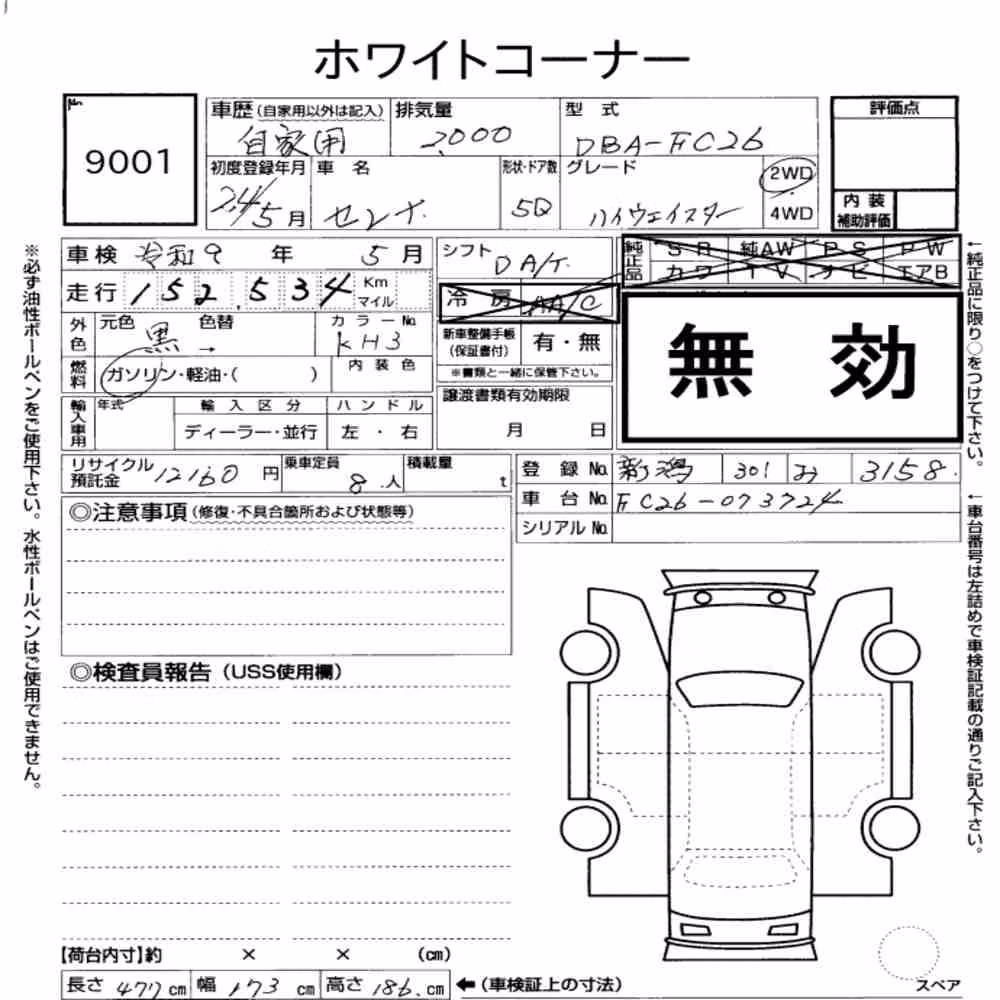 ホワイトコーナー
9001
車歴(自家用以外は記入) 排気量 型式 評価点
自家用 2,000 DBA-FC26
初度登録年月 車名 形状・ドア数 グレード 2WD
24/5月 セレナ 5D ハイウェイスター 4WD
内装
補助評価
車検 令和9年 5月 シフト DA/T
純正品 SR 純AW PS PW
カワ TV ナビ エアB
走行 152,534 Km マイル
冷房 AA/C
外色 元色 黒 → 色替 カラーNo. KH3
新車整備手帳(保証書付) 有・無
※書類と一緒に保管下さい。
無効
燃料 ガソリン・軽油・( ) 内装色
譲渡書類有効期限
月 日
輸入車用 年式 輸入区分 ハンドル
ディーラー・並行 左・右
リサイクル預託金 12160円 乗車定員 8人 積載量 t
登録No. 新潟 301 み 3158
車台No. FC26-073724
シリアルNo.
◎注意事項(修復・不具合箇所および状態等)
◎検査員報告(USS使用欄)
【荷台内寸】約 × × (cm)
長さ 477cm 幅 173cm 高さ 186cm ←(車検証上の寸法)
スペア
※必ず油性ボールペンをご使用下さい。水性ボールペンはご使用できません。
←純正品に限り○をつけて下さい。
←車台番号は左詰めで車検証記載の通りご記入下さい。